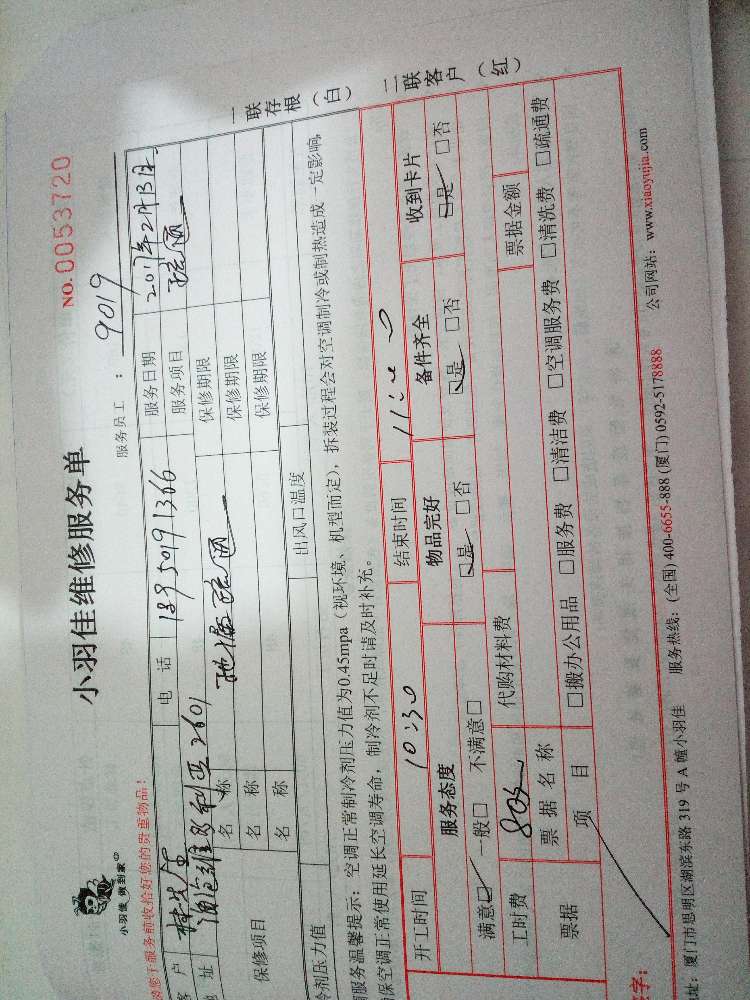 小羽佳 做到家
小羽佳维修服务单
NO.0053720
服务员工：9019
您于服务前收拾好您的贵重物品！
客户 电话 18950191366 服务日期 2017年2月13日
地址 维多利亚2601 服务项目 疏通
保修项目 名称 地漏疏通 保修期限
名称 保修期限
名称 保修期限
冷剂压力值 出风口温度
服务温馨提示：空调正常制冷剂压力值为0.45mpa（视环境、机型而定），拆装过程会对空调制冷或制热造成一定影响，
保空调正常使用延长空调寿命，制冷剂不足时请及时补充。
一联存根（白） 二联客户（红）
开工时间 10:30 结束时间 11:00
服务态度 物品完好 备件齐全 收到卡片
满意☑ 一般□ 不满意□ ☑是 □否 ☑是 □否 ☑是 □否
工时费 80 代购材料费
票据 票据名称 票据金额
项目 □搬办公用品 □服务费 □清洁费 □空调服务费 □清洗费 □疏通费
字：
址：厦门市思明区湖滨东路 319 号 A 幢小羽佳 服务热线：(全国) 400-6655-888 (厦门) 0592-5178888 公司网站：www.xiaoyujia.com